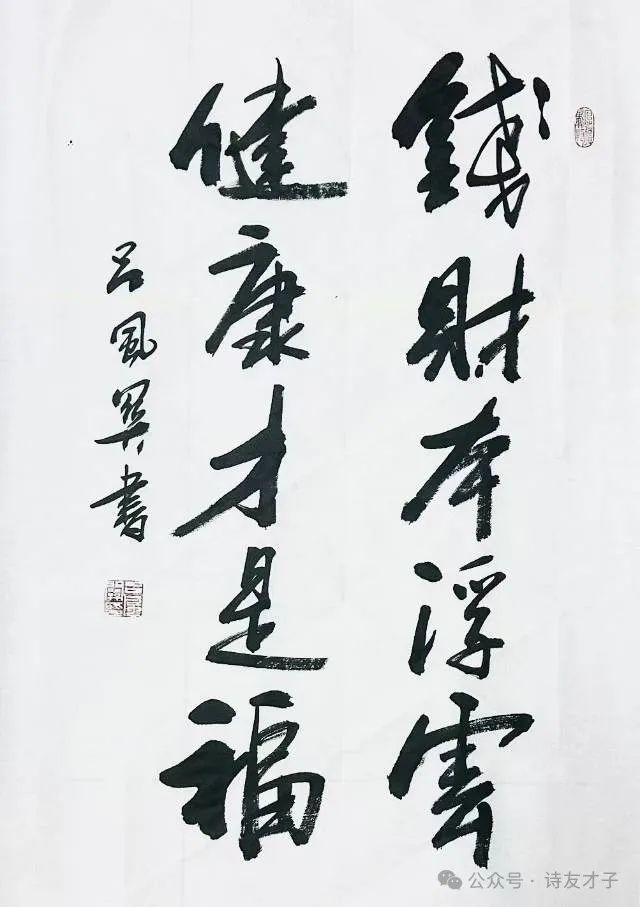 錢財本浮雲
健康才是福
吕風翼書
公众号 · 诗友才子